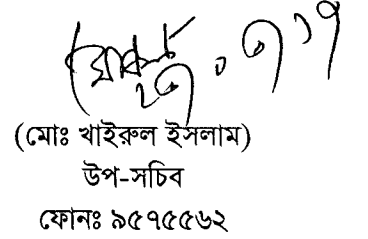 (মোঃ খাইরুল ইসলাম)
উপ-সচিব
ফোনঃ ৯৫৭৫৫৬২